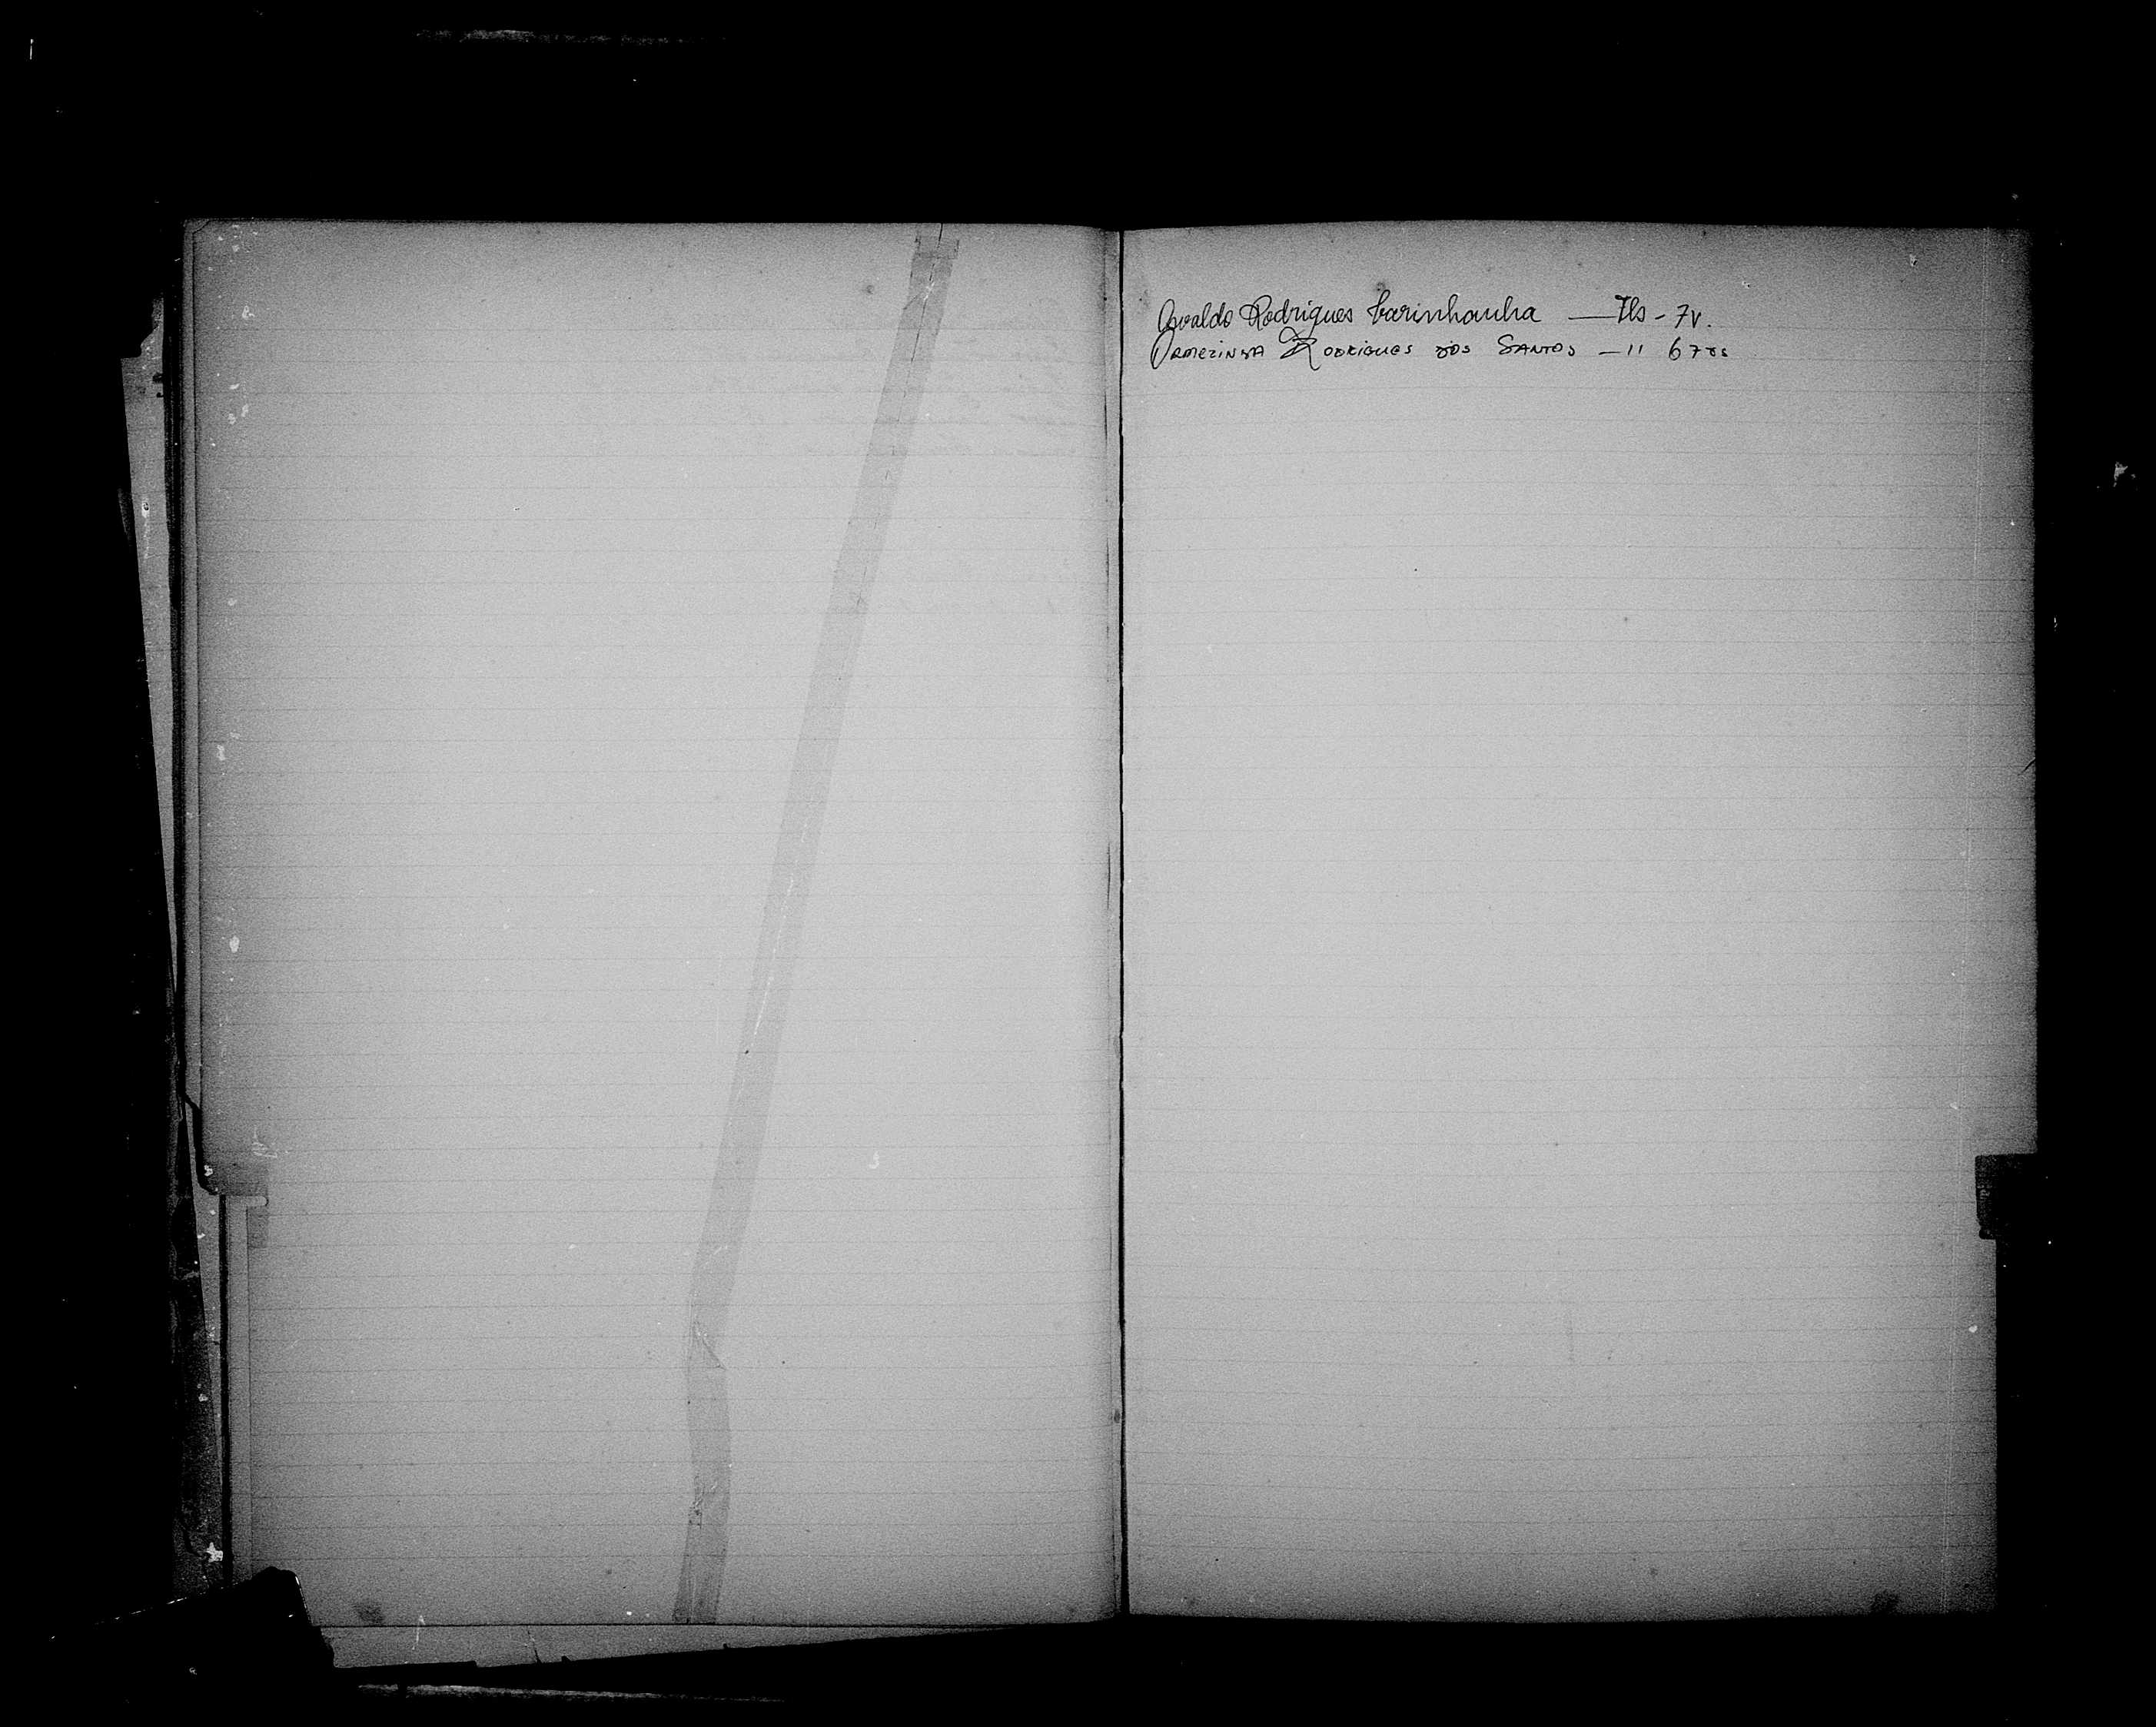 Osvaldo Rodrigues Carinhanha — Fls - 7v.
Ormezinda Rodrigues dos Santos — 11 67